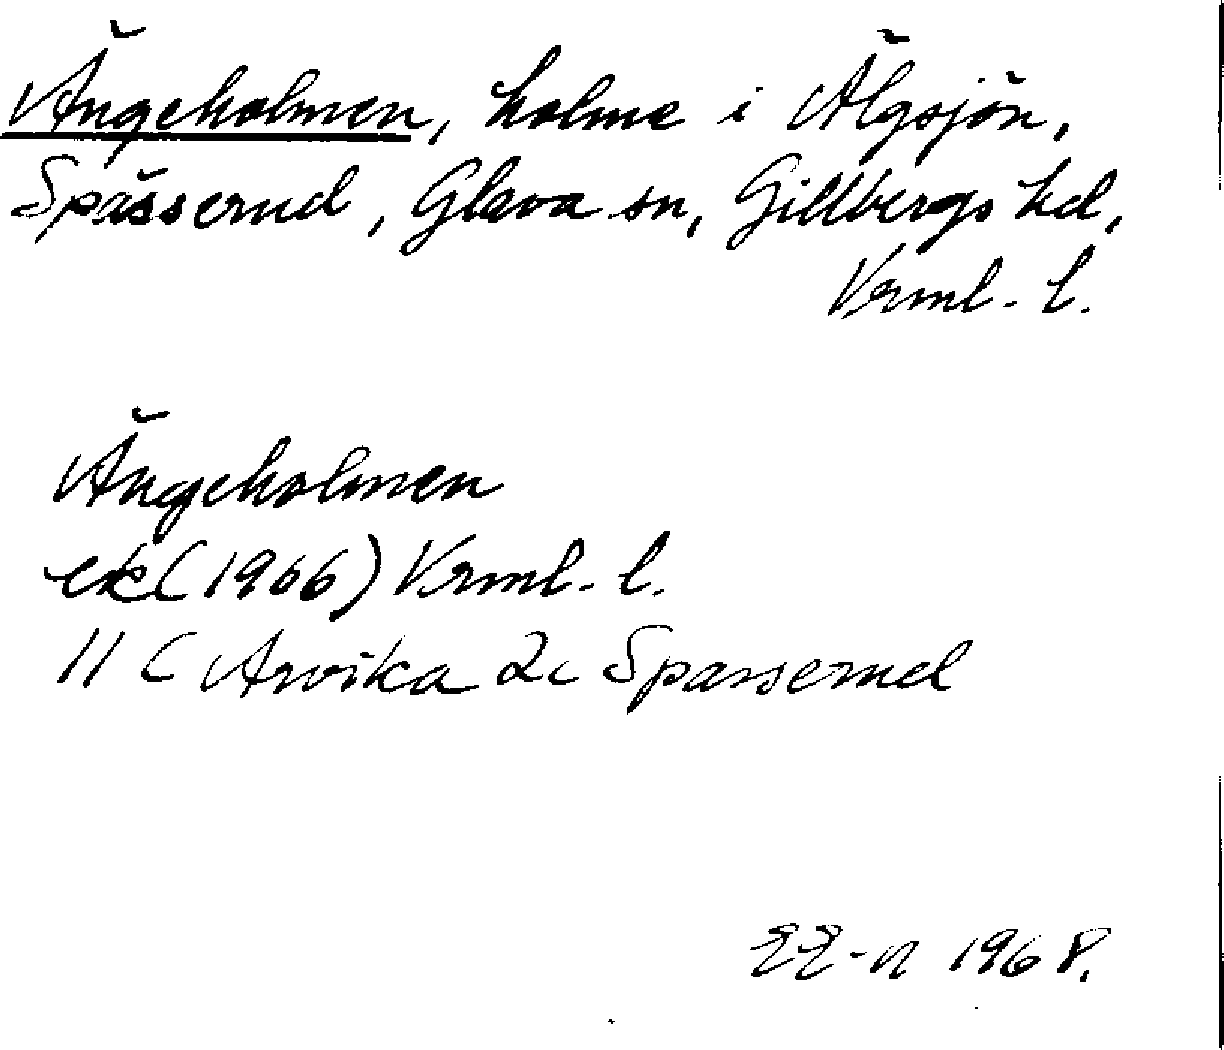 Ängeholmen, holme i Älgsjön,
Spässerud, Glava sn, Gillbergs hd,
Vrml. l.
Ängeholmen
ek (1966) Vrml. l.
11 C Arvika 2c Spässerud
1968.